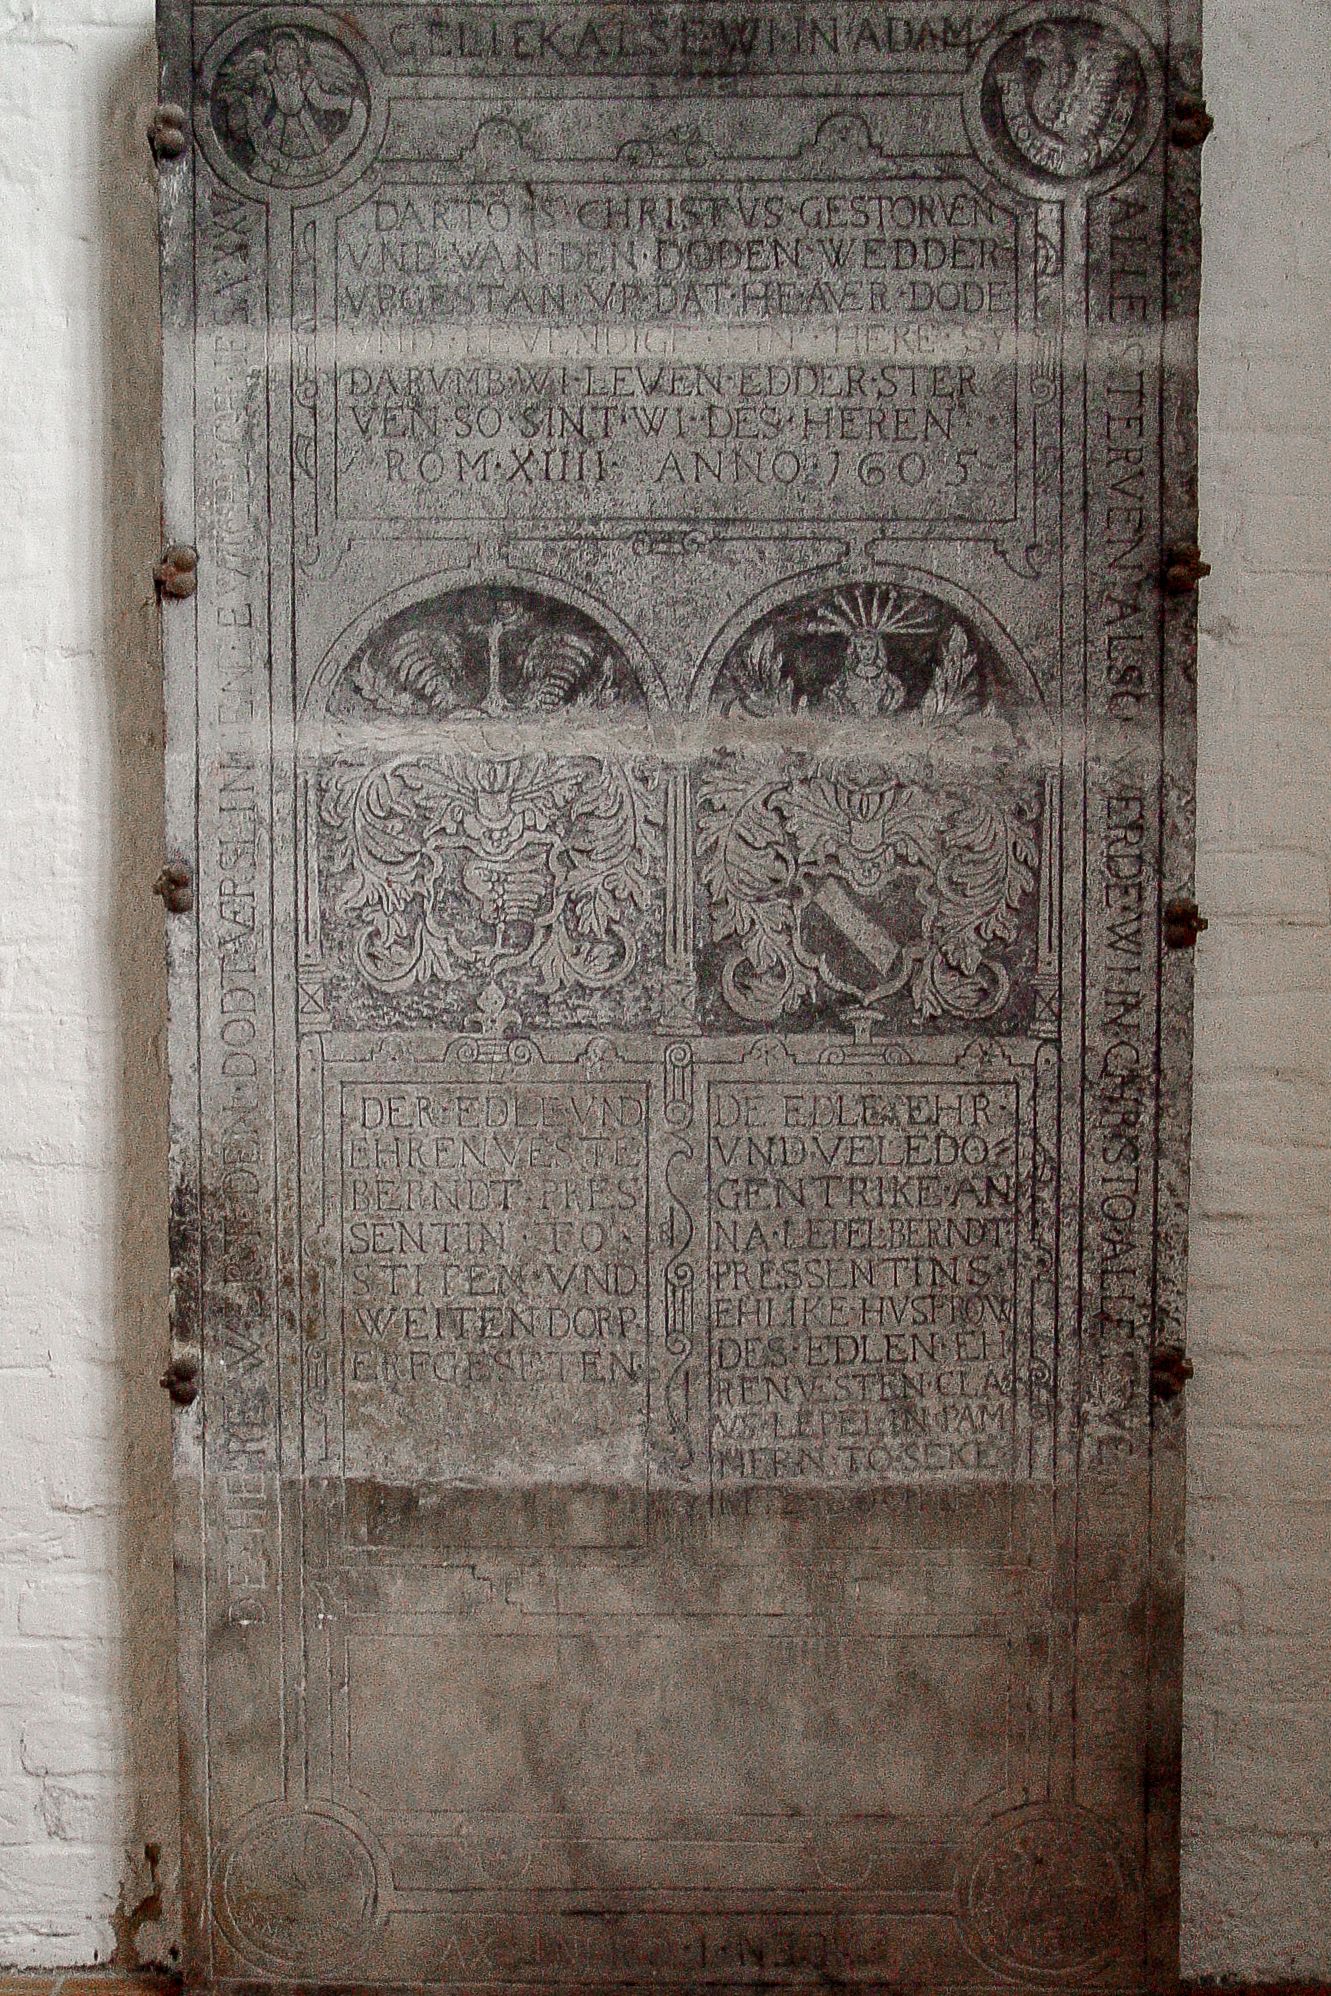 GELIEK ALSE WI IN ADAM
ALLE STERVEN ALSO VERDE WI IN CHRSTO ALLE LEVE
I CORINT XV
DE HERE WART DEN DODT VERSLIN EN
IOHAN
DARTO IS CHRISTVS GESTORVEN
VND VAN DEN DODEN WEDDER
VPGESTAN VP DAT HE AVER DODE
VND LEVENDIGE EIN HERE SY
DARVMB WI LEVEN EDDER STER
VEN SO SINT WI DES HEREN
ROM XIIII ANNO 1605
DER EDLE VND
EHRENVESTE
BERNDT PRES
SENTIN TO
STITEN VND
WEITENDORP
ERFGESETEN
DE EDLE EHR
VND VELEDO
GENTRIKE AN
NA LEPEL BERNDT
PRESSENTINS
EHLIKE HVSFROW
DES EDLEN EH
RENVESTEN CLA
VS LEPEL IN PAM
MERN TO SEKE